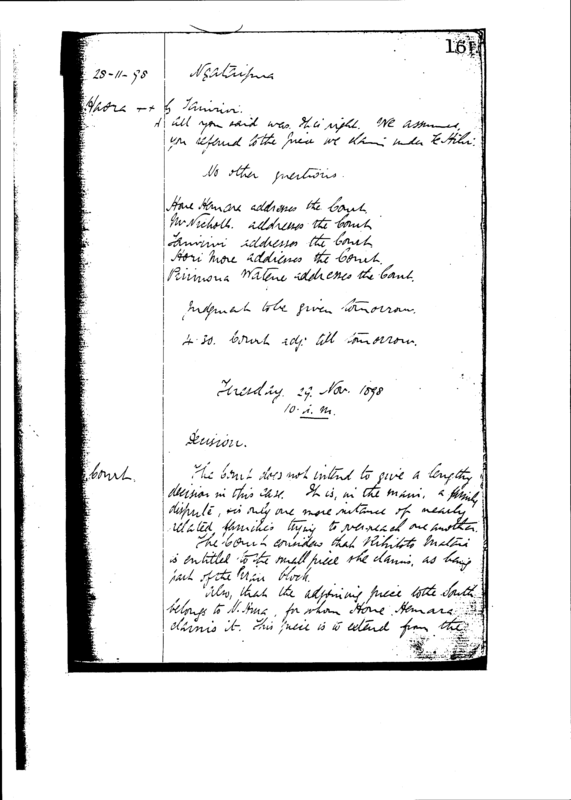 161
28-11-98 Ngataipua
Haora ++ by Tawiwi.
A All you said was. It is right. We assumed
you referred to the piece we claim under Te Hihi.
No other questions.
Hone Hemara addresses the Court
Mr Nicholls. addresses the Court
addresses the Court
Hori More addresses the Court.
Pirimona Watene addresses the Court.
Judgment to be given tomorrow.
4.30. Court adj: till tomorrow.
Tuesday. 29. Nov. 1898
10. a.m.
Decision.
Court. The Court does not intend to give a lengthy
decision in this case. It is, in the main, a family
dispute, & is only one more instance of nearly
related families trying to over-reach one another.
The Court considers that Rihitoto Mataia
is entitled to the small piece she claims, as being
part of the block.
Also, that the adjoining piece to the South
belongs to , for whom Hone Hemara
claims it. This piece is to extend from the